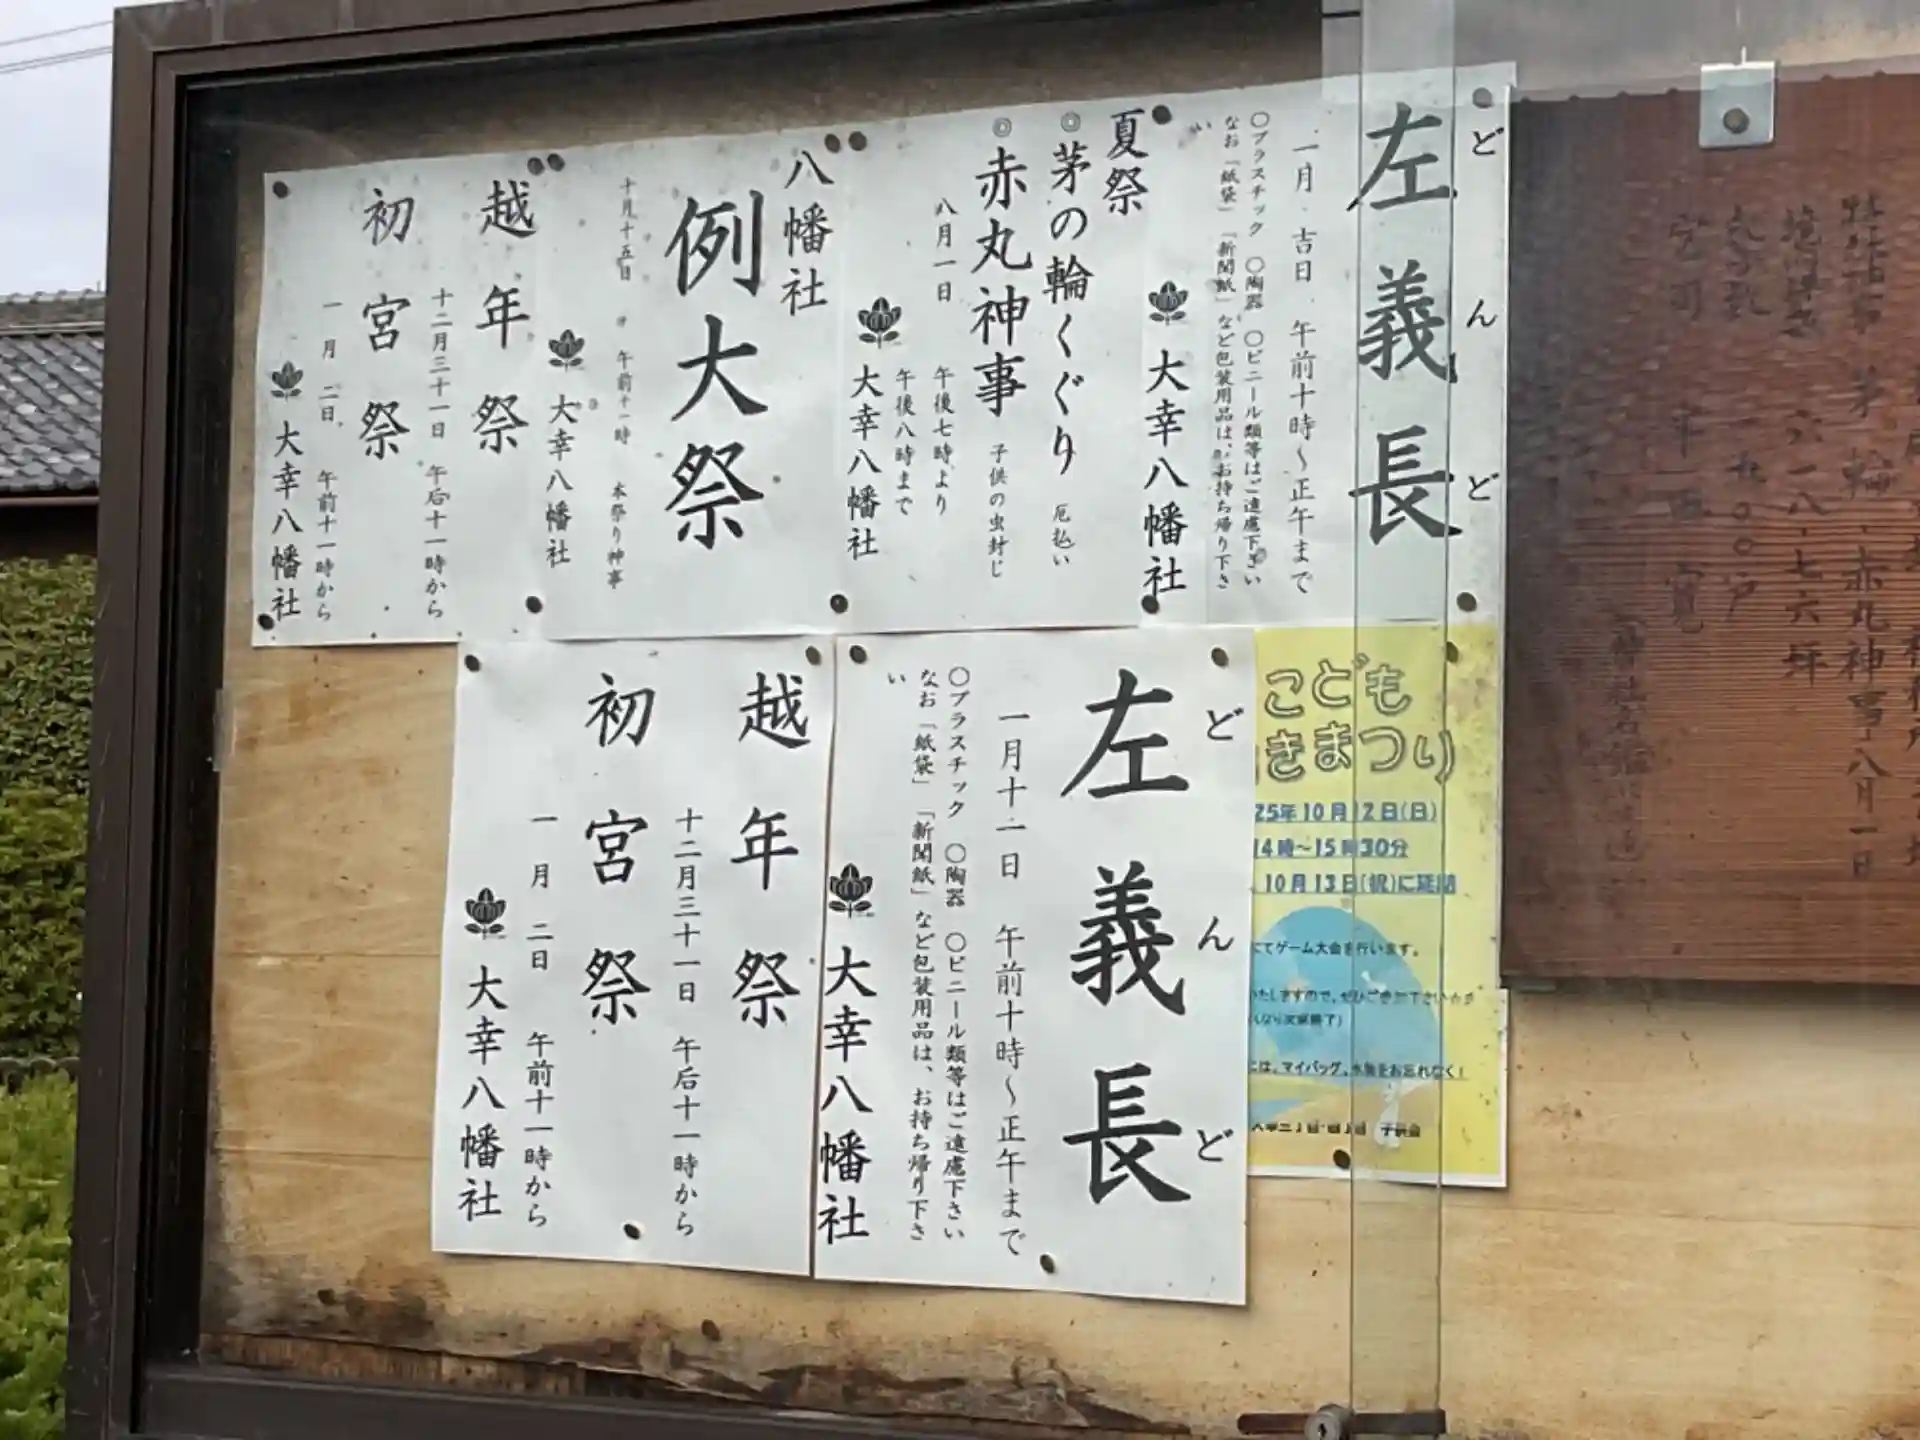 左義長
どんど
一月 吉日 午前十時～正午まで
〇プラスチック 〇陶器 〇ビニール類等はご遠慮下さい
なお「紙袋」「新聞紙」など包装用品は、お持ち帰り下さ
い
大幸八幡社
夏祭
◎茅の輪くぐり 厄払い
◎赤丸神事 子供の虫封じ
八月一日 午後七時より
午後八時まで
大幸八幡社
八幡社
例大祭
十月十五日 午前十一時 本祭り神事
大幸八幡社
越年祭
十二月三十一日 午后十一時から
初宮祭
一月二日、午前十一時から
大幸八幡社
左義長
どんど
一月十一日 午前十時～正午まで
〇プラスチック 〇陶器 〇ビニール類等はご遠慮下さい
なお「紙袋」「新聞紙」など包装用品は、お持ち帰り下さ
い
大幸八幡社
越年祭
十二月三十一日 午后十一時から
初宮祭
一月二日 午前十一時から
大幸八幡社
こども
きまつり
25年10月12日(日)
14時～15時30分
10月13日(祝)に延期
にてゲーム大会を行います。
いたしますので、ぜひご参加下さい
には、マイバッグ、水筒をお忘れなく！
子供会
茅輪・赤丸神事 八月一日
六一八・七六坪